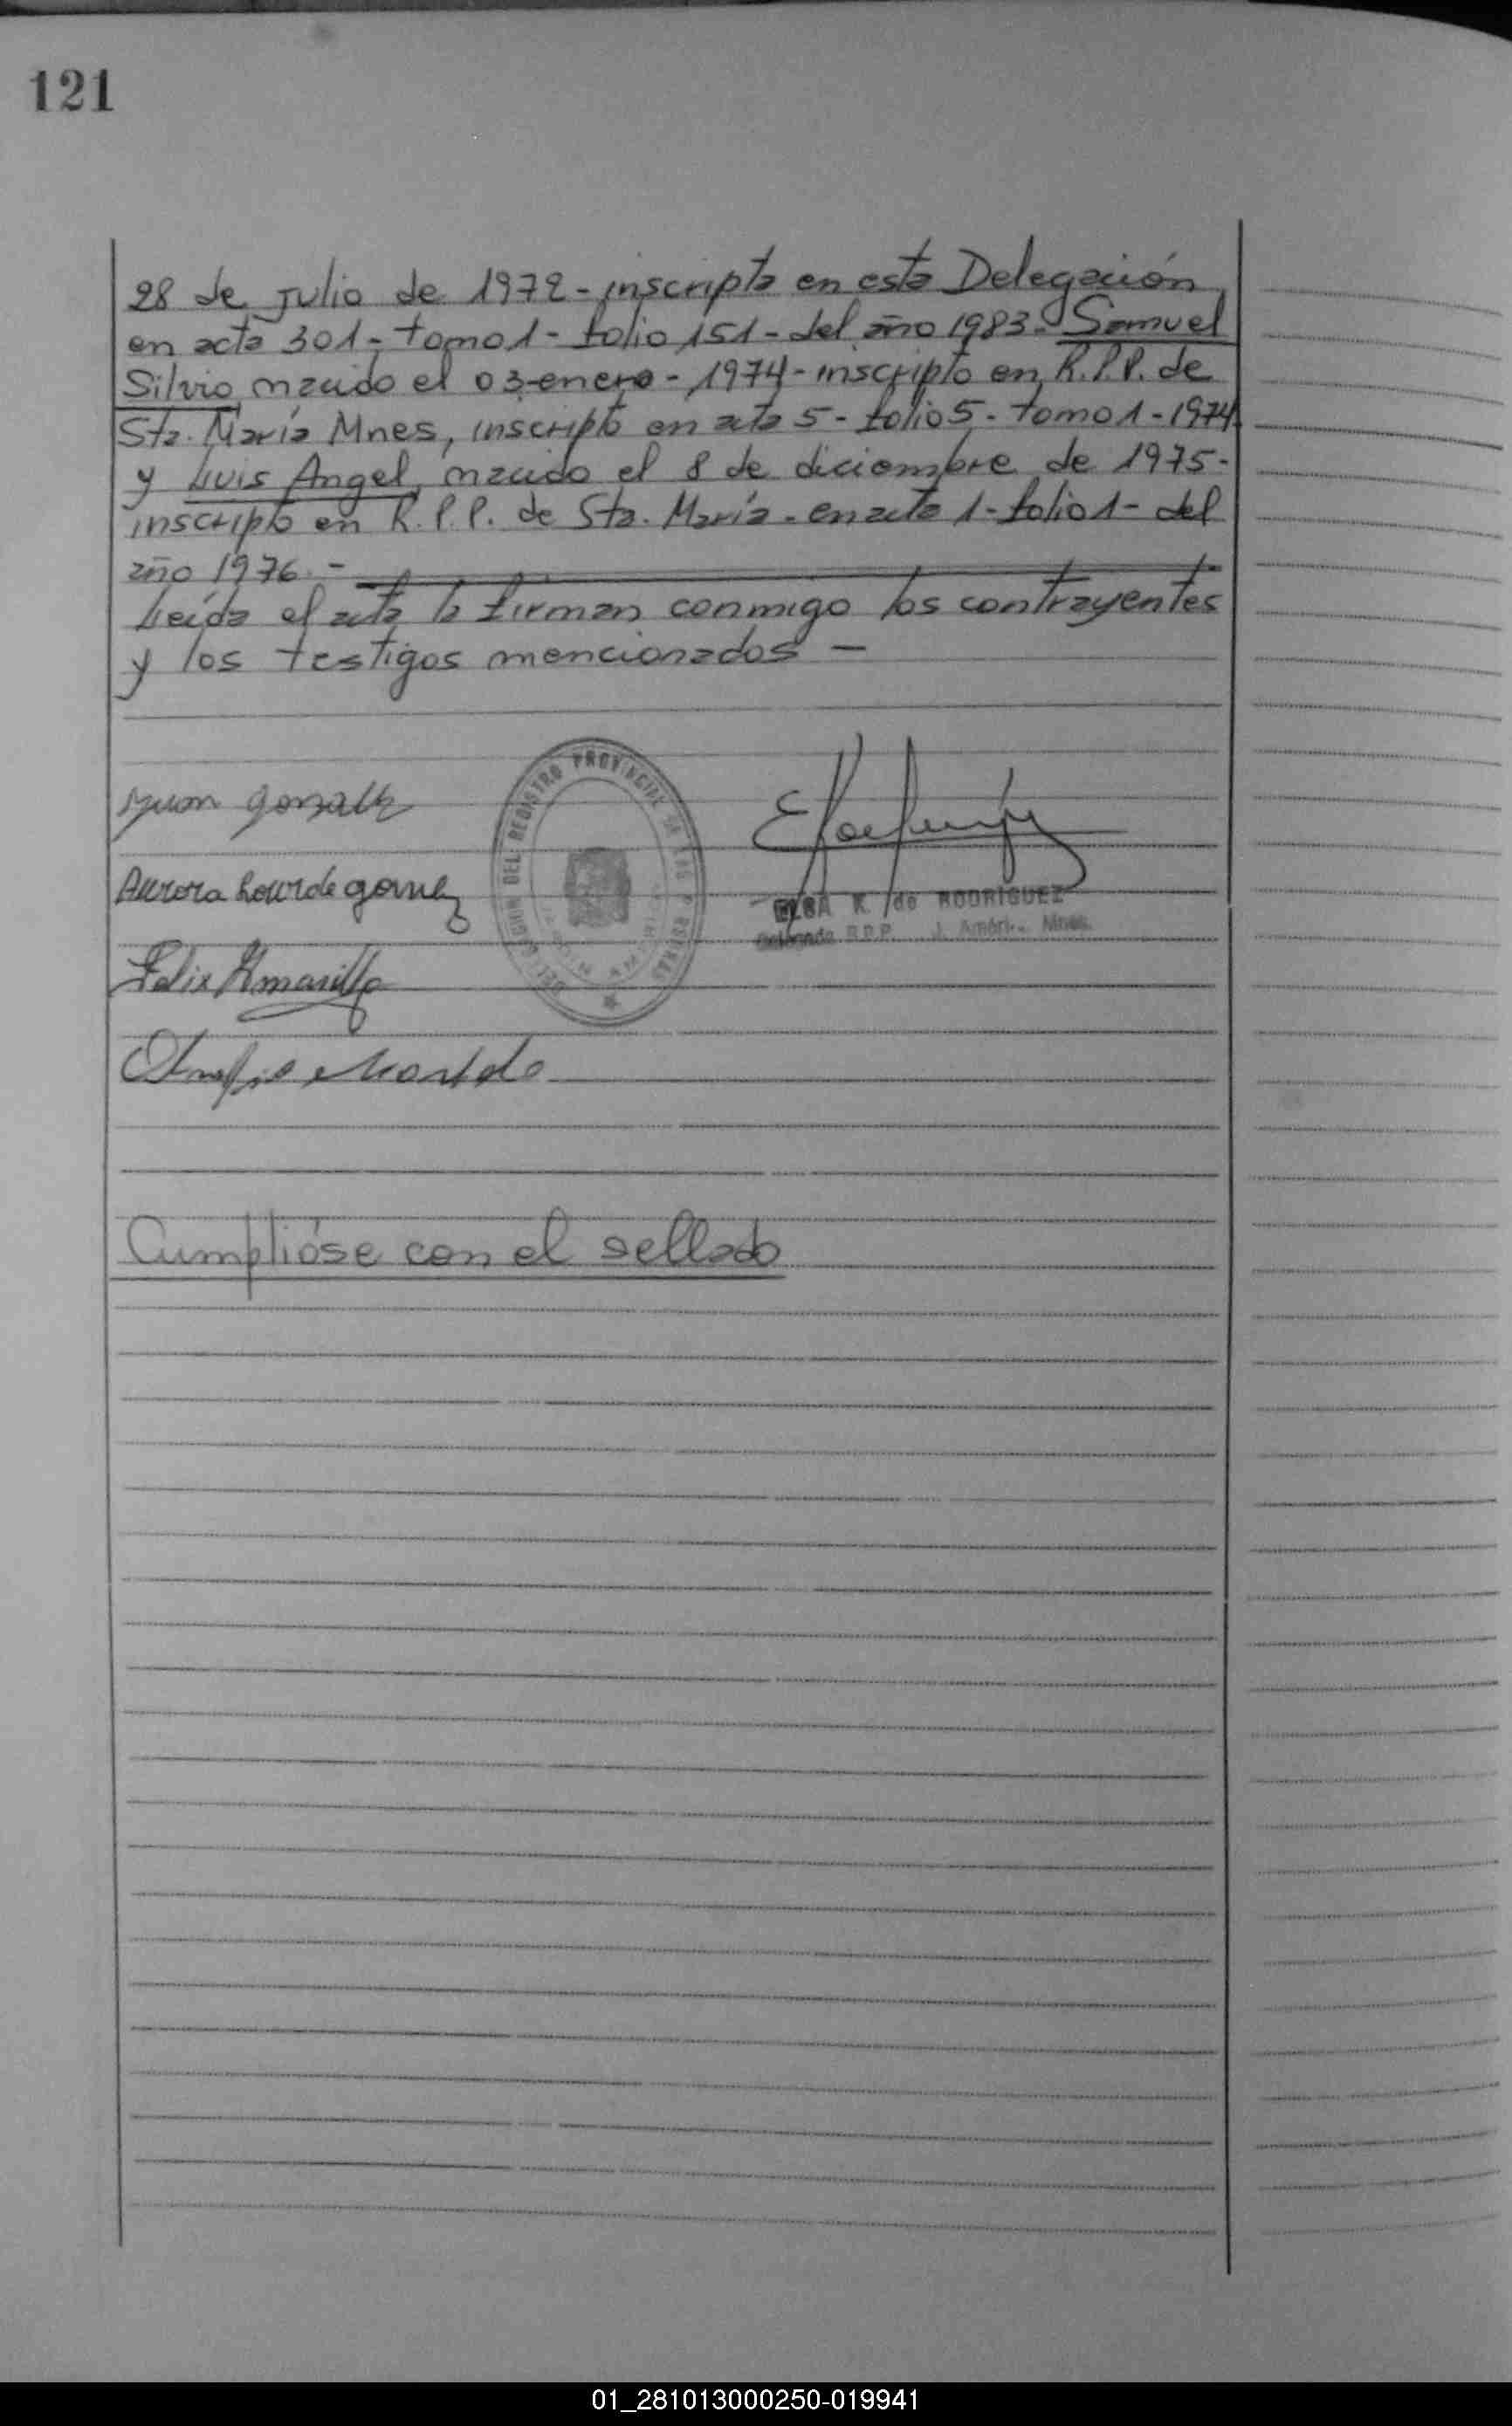 121
28 de julio de 1972 - inscripta en esta Delegación
en acta 301 - tomo 1 - folio 151 - del año 1983. Samuel
Silvio nacido el 03 - enero - 1974 - inscripto en R.P.P. de
Sta. María Mnes, inscripto en acta 5 - folio 5 - tomo 1 - 1974
y Luis Angel, nacido el 8 de diciembre de 1975 -
inscripto en R.P.P. de Sta. María - en acta 1 - folio 1 - del
año 1976. -
Leída el acta la firman conmigo los contrayentes
y los testigos mencionados -
DEL REGISTRO PROVINCIAL DE LAS PERSONAS
Juan
Aurora Lourde gomez
ELSA K. de RODRIGUEZ
Delegada R.P.P. J. Améri. Mnes.
Felix Amarilla
Cumplióse con el sellado
01_281013000250-019941